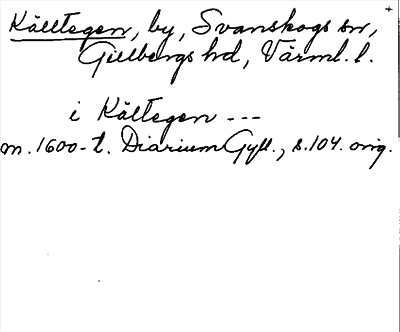 Källtegen, by, Svanskogs sn,
Gillbergs hd, Värml. l.
i Kältegen ---
m. 1600-t. Diarium Gyll., s. 104. orig.